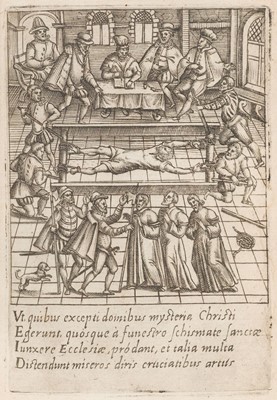 Vt quibus excepti domibus mysteria Christi
Egerunt, quósque à funestro schismate sanctæ
Iunxere Ecclesiæ, pròdant, et talia multa
Distendunt miseros diris cruciatibus artus